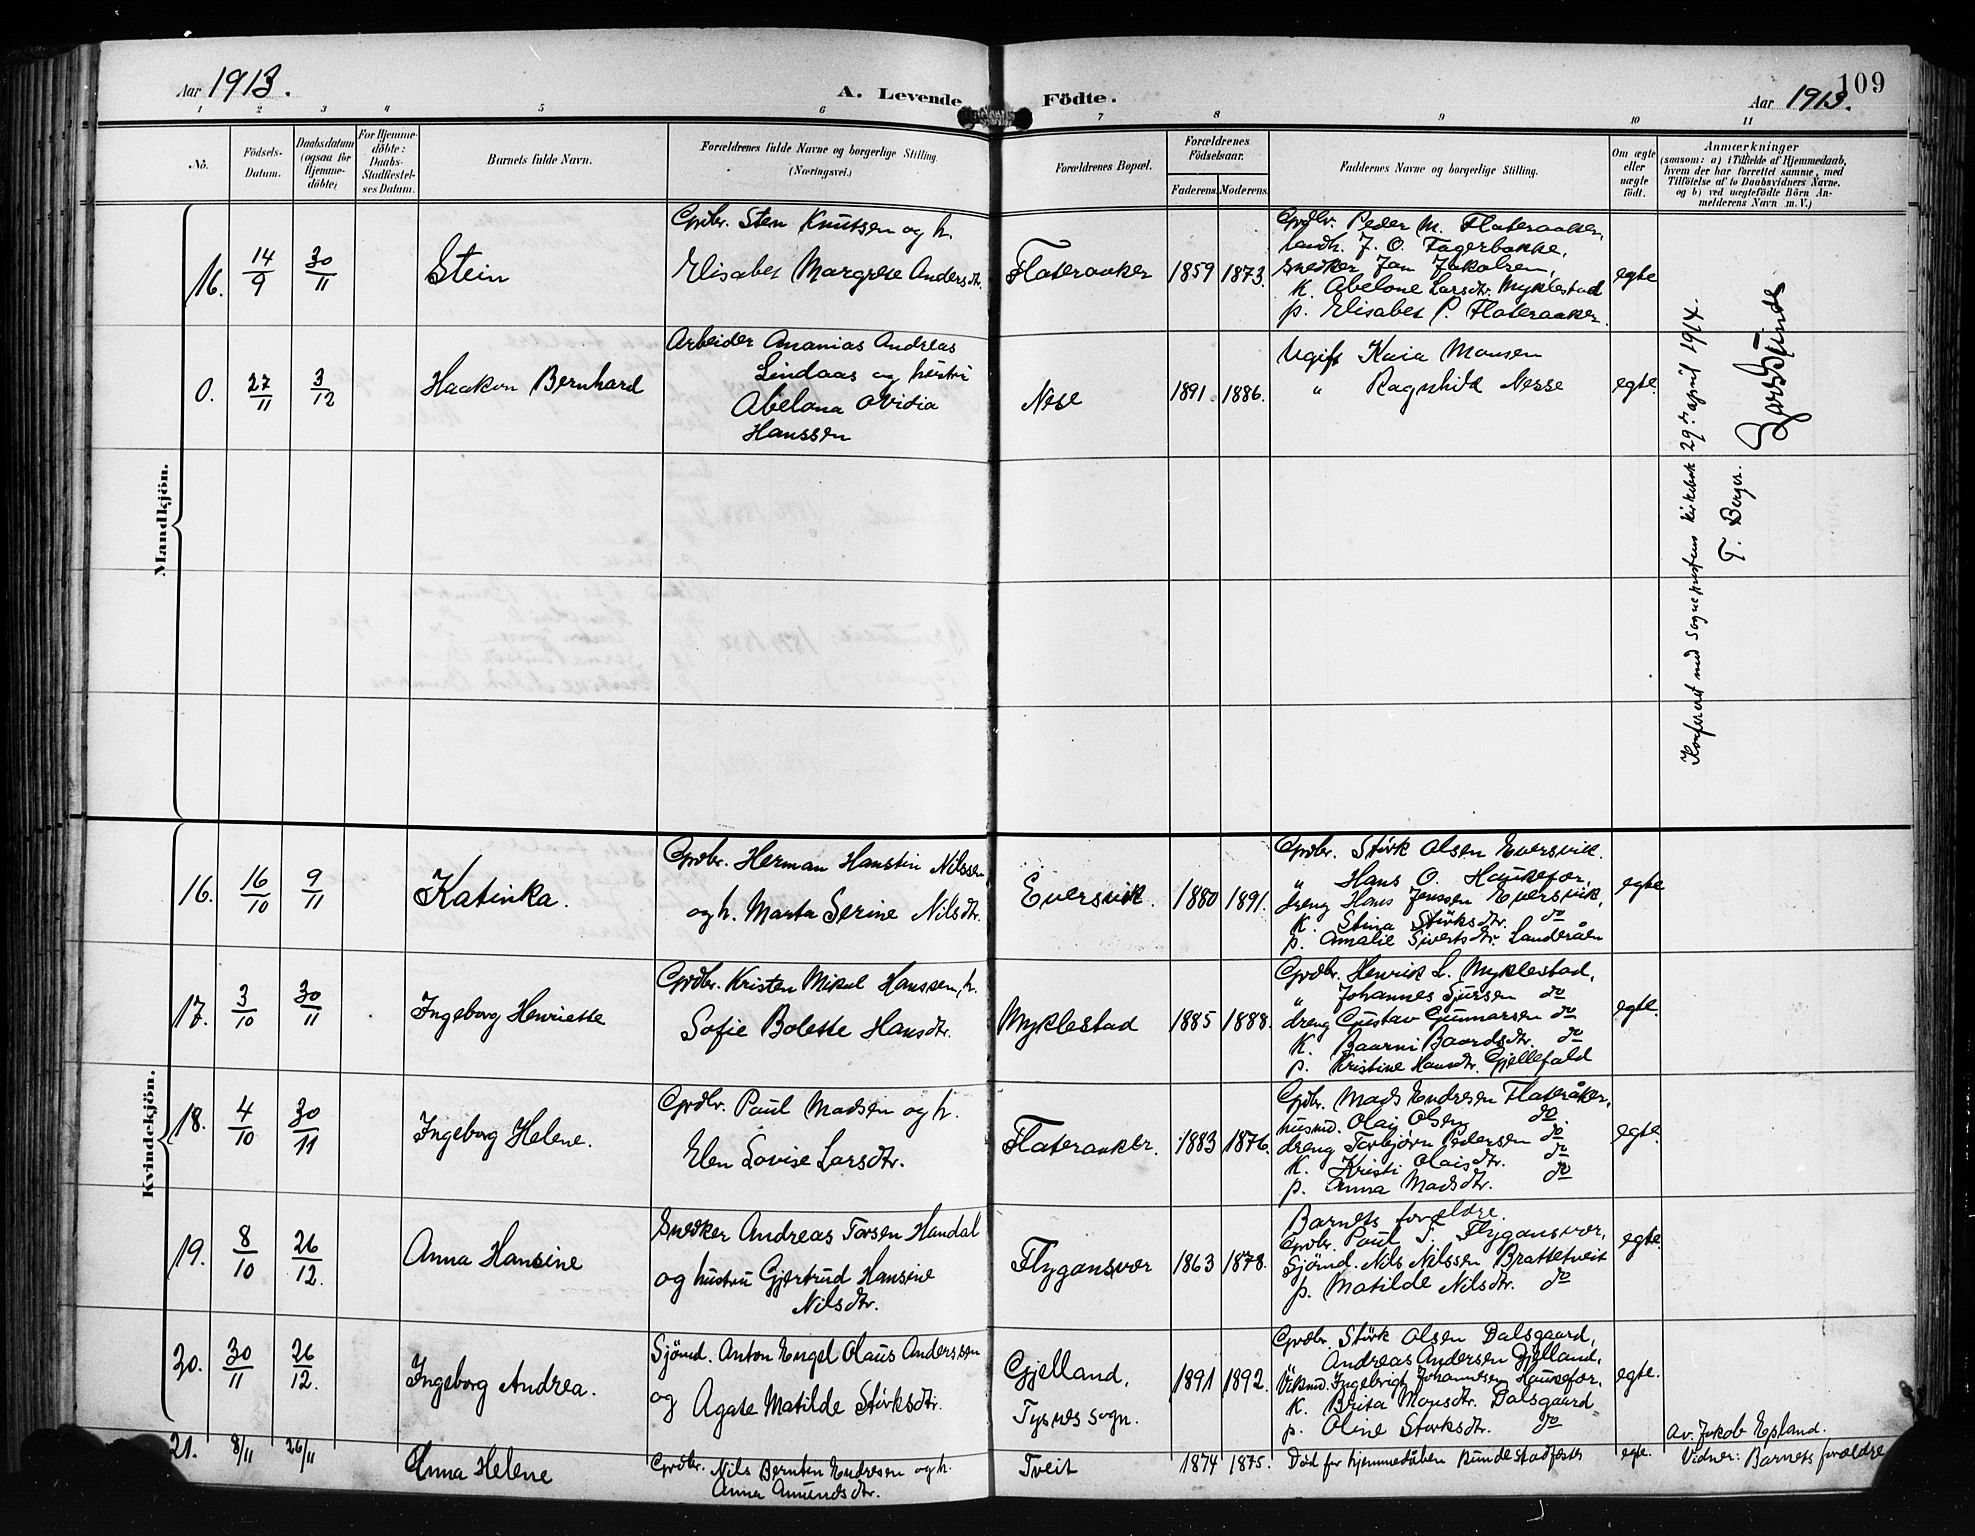 Aar 1913.
A. Levende Födte.
Aar 1913.
109
1 2 3 4 5 6 7 8 9 10 11
No.
Födsels-Datum.
Daabsdatum (ogsaa for Hjemme-döbte)
For Hjemme-döbte: Daabs-Stadfæstel-ses Datum.
Barnets fulde Navn.
Forældrenes fulde Navne og borgerlige Stilling. (Næringsvei.)
Forældrenes Bopæl.
Forældrenes Födselsaar.
Faderens. Moderens.
Faddernes Navne og borgerlige Stilling.
Om ægte eller uægte födt.
Anmærkninger
(saasom: a) i Tilfælde af Hjemmedaab,
hvem der har forrettet samme, med
Tilföielse af to Daabsvidners Navne.
og b) ved uægtefödte Börn An-
melderens Navn m. V.)
Mandkjön.
16. 14/9 30/11 Stein
Grdbr. Sten Knutsen og h.
Elisabet Margrete Andersdtr.
Flateraaker 1859 1873.
Grdbr. Peder M. Flateraaker,
landh. J. O. Fagerbakke,
snedker Jan Jakobsen,
k. Abelone Larsdtr. Myklestad
p. Elisabet P. Flateraaker.
egte
0. 27/11 3/12 Haakon Bernhard
Arbeider Ananias Andreas
Lindaas og hustru
Abelona Ovidia
Hanssen
Nese 1891. 1886.
Ugift Kaia Monsen
" Ragnhild Nesse
egte.
Konfereret med sogneprestens kirkebok 29de april 1914.
T. Berger.
Kvindekjön.
16. 16/10 9/11 Katinka.
Grdbr. Herman Hanstin Nilssen
og h. Marta Serine Nilsdtr.
Eversvik. 1880 1891.
Grdbr. Störk Olsen Eversvik.
" Hans O. Haukefær,
dreng Hans Jenssen Eversvik,
k. Stina Störksdtr. do
p. Amalie Sivertsdtr. Landeråen
egte
17. 3/10 30/11 Ingeborg Henriette
Grdbr. Kristen Mikal Hanssen, h.
Sofie Bolette Hansdtr.
Myklestad 1885 1888.
Grdbr. Henrik L. Myklestad,
" Johannes Sjursen do
dreng Gustav Gunnarsen do
k. Baarni Baardsdtr. do
p. Kristine Hansdtr. Gjellefald
egte.
18. 4/10 30/11 Ingeborg Helene.
Grdbr. Paul Madsen og h.
Elen Lovise Larsdtr.
Flateraaker. 1883 1876.
Grdbr. Mads Endresen Flateråker,
husmd. Olai Olsen do.
dreng Torbjørn Pedersen do
k. Kristi Olaisdtr. do
p. Anna Madsdtr. do
egte.
19. 8/10 26/12. Anna Hansine
Snedker Andreas Torsen Handal
og hustru Gjertrud Hansine
Nilsdtr.
Flygansvær 1863 1878.
Barnets forældre.
Grdbr. Paul T. Flygansvær,
Sjömd. Nils Nilssen Brattetveit
p. Matilde Nilsdtr. do
egte.
20. 30/11 26/12. Ingeborg Andrea.
Sjömd. Anton Engel Olaus Anderssen
og Agate Matilde Störksdtr.
Gjelland,
Tysnes sogn.
1891 1892.
Grdbr. Störk Olsen Dalsgaard,
Andreas Andersen Gjelland,
Ingebrigt Johannesen Haukefær,
k. Brita Monsdtr. Dalsgaard
p. Oline Störksdtr. do
egte.
21. 8/11 26/11 Anna Helene
Grdbr. Nils Berntin Endresen og h.
Anna Amundsdtr.
Tveit 1874 1875.
Död før hjemmedåben kunde stadfæstes
egte.
Av. Jakob Epland.
Vidner: Barnets forældre